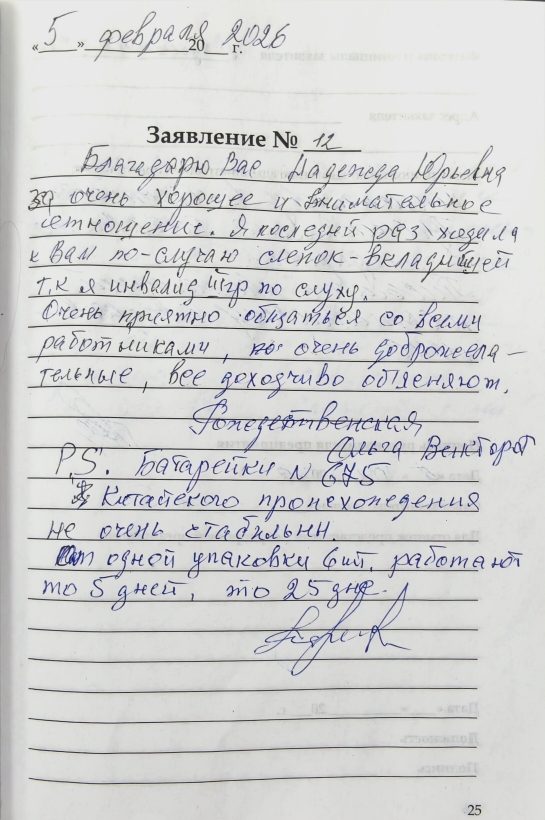 «5» февраля 2026 г.
Заявление № 12
Благодарю Вас Надежда Юрьевна
за очень хорошее и внимательное
отношение. Я последний раз ходила
к Вам по-случаю слепок-вкладышей
т.к я инвалид III гр по слуху.
Очень приятно общаться со всеми
работниками, очень доброжела-
тельные, все доходчиво объясняют.
Рождественская
Ольга Викторов
P.S. Батарейки № 675
Китайского происхождения
не очень стабильны.
От одной упаковки 6 шт. работают
то 5 дней, то 25 дне.
25